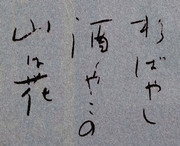 杉ばやし
酒やこの
山は花